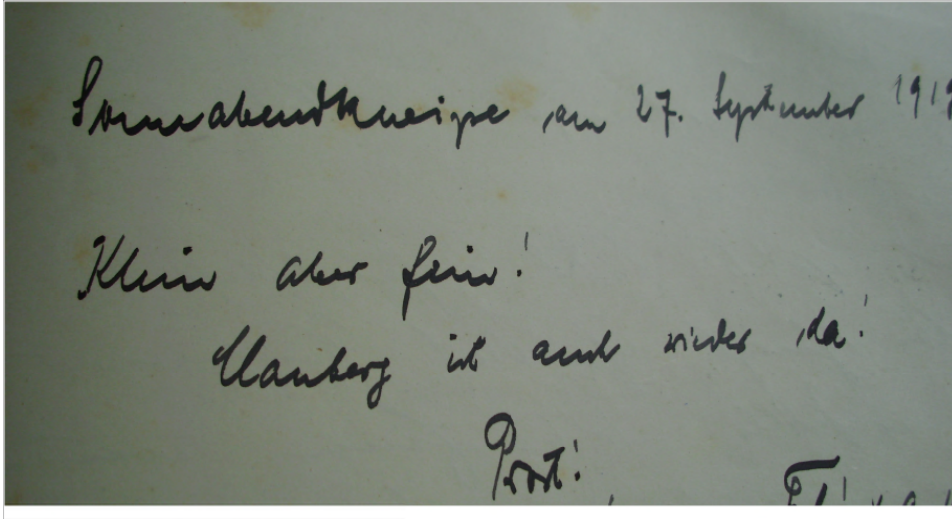 Sonnabendkneipe am 27. September 1919
Klein aber fein!
Clauberg ist auch wieder da!
Prost!